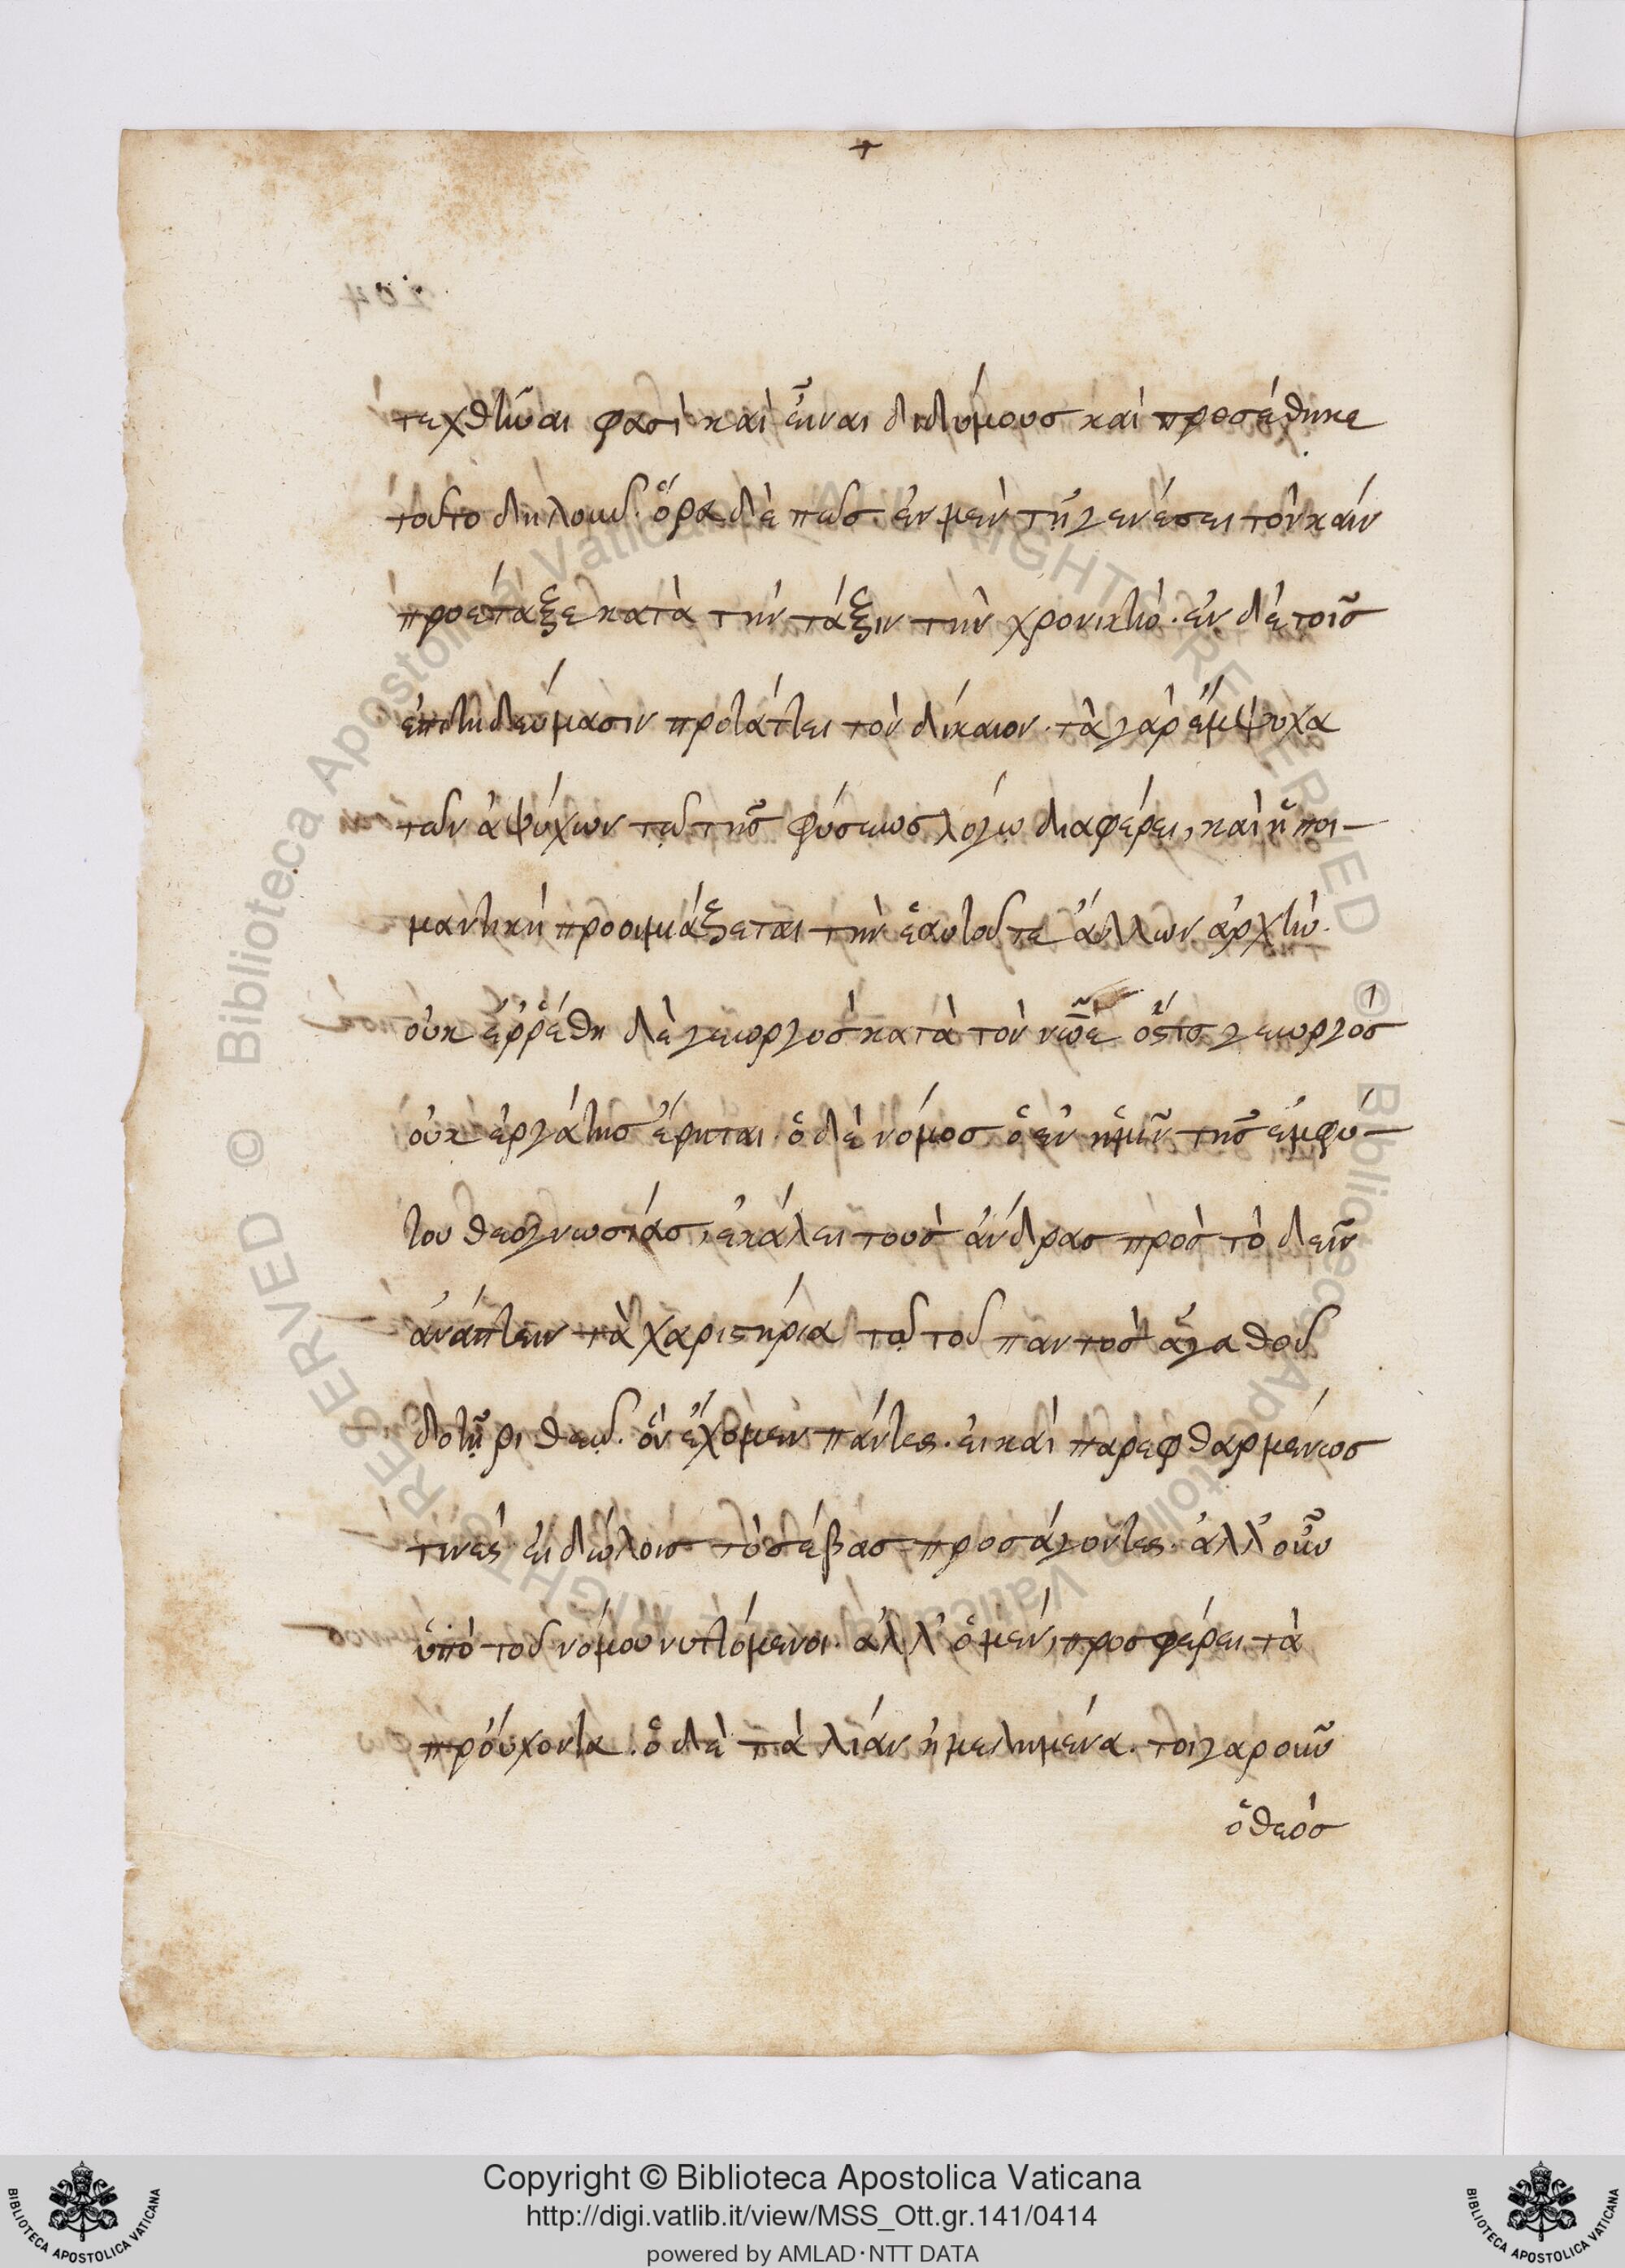 τεχθῆναι φασὶ καὶ εἶναι διδύμους καὶ προσέθηκε
τοῦτο δηλοῦν. ὅρα δὲ πῶς. ἐν μὲν τῇ γενέσει τὸν κάϊν
προέταξε κατὰ τὴν τάξιν τὴν χρονικήν. ἐν δὲ τοῖς
ἐπιτηδεύμασιν προτάττει τὸν δίκαιον. τὰ γὰρ ἔμψυχα
τῶν ἀψύχων τῷ τῆς φύσεως λόγῳ διαφέρει, καὶ ἡ ποι-
μαντικὴ προοιμιάζεται τὴν ἑαυτοῦ τε ἄλλων ἀρχήν.
οὐκ ἐῤῥέθη δὲ γεωργὸς κατὰ τὸν νῶε ὅστις γεωργὸς
οὐκ ἐργάτης εἴρηται. ὁ δὲ νόμος ὁ ἐν ἡμῖν τῆς ἐμφύ-
του θεογνωσίας, ἐκάλει τοὺς ἄνδρας πρὸς τὸ δεῖν
ἀνάπτειν τὰ χαριστήρια τῷ τοῦ παντὸς ἀγαθοῦ
δοτῆρι θεῷ. ὃν ἔχομεν πάντες. εἰ καὶ παρεφθαρμένως
τινὲς εἰδώλοις τὸ σέβας προσάγοντες. ἀλλ' οὖν
ὑπὸ τοῦ νόμου νυττόμενοι. ἀλλ' ὁ μὲν, προσφέρει τὰ
προύχοντα. ὁ δὲ τὰ λίαν ἠμελημένα. τοιγαροῦν
ὁ θεὸς
Copyright © Biblioteca Apostolica Vaticana
http://digi.vatlib.it/view/MSS_Ott.gr.141/0414
powered by AMLAD·NTT DATA